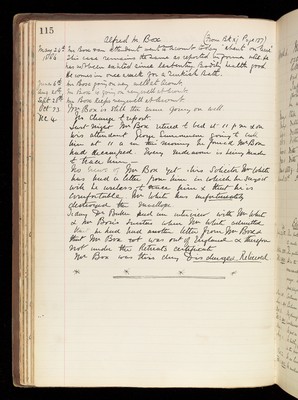 115
Alfred M. Box (From Bk xj Page 157)
May 24th Mr Box's attendant went to Newcomb today "absent on leave"
1886 This case remains the same as reported in former notes he
has not been excited since last entry. Bodily health good
he comes in once a week for a Turkish Bath.
June 6th Mr Box going on very well at Newcomb.
Aug 20th Mr Box is going on very well at Newcomb.
Sept 28th Mr Box keeps very well at Newcomb.
Oct 23 Mr Box is still the same going on well.
Dec 4 No Change to report.
Last night Mr Box retired to bed at 11 p.m. & on
his attendant George going to call
him at in the morning he found Mr Box
had decamped. Every endeavour is being made
to trace him.
No news of Mr Box yet. His Solicitor Mr White
has had a letter from him in which he says
it is useless to trace him & that he is
comfortable. Mr White has unfortunately
destroyed the envelope
Today Dr had an interview with Mr White
& Mr Box's Trustees when Mr White admitted
that he had had another letter from Mr Box &
that Mr Box was out of England & therefore
not under the Certificate
Mr Box was this day Discharged Relieved.